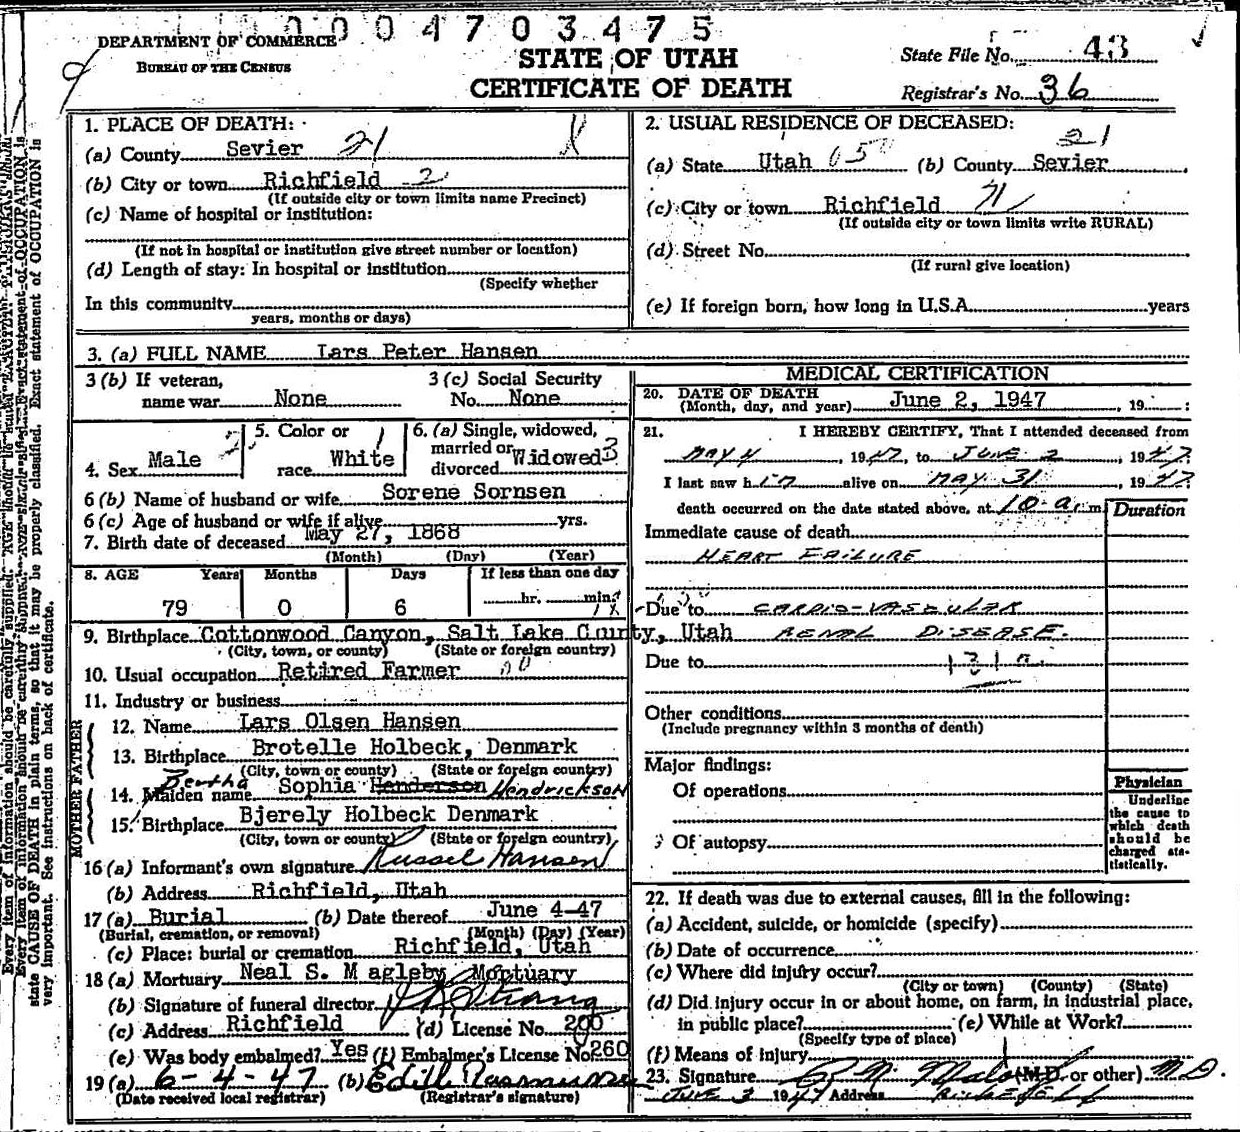 0004703475
DEPARTMENT OF COMMERCE
BUREAU OF THE CENSUS
STATE OF UTAH
CERTIFICATE OF DEATH
State File No. 43
Registrar's No. 36
1. PLACE OF DEATH:
(a) County Sevier 21
(b) City or town Richfield 2
(If outside city or town limits name Precinct)
(c) Name of hospital or institution:
(If not in hospital or institution give street number or location)
(d) Length of stay: In hospital or institution
(Specify whether
In this community
years, months or days)
2. USUAL RESIDENCE OF DECEASED:
21
(a) State Utah 05 (b) County Sevier
(c) City or town Richfield 71
(If outside city or town limits write RURAL)
(d) Street No.
(If rural give location)
(e) If foreign born, how long in U.S.A. years
3. (a) FULL NAME Lars Peter Hansen
3 (b) If veteran,
name war None
3 (c) Social Security
No. None
4. Sex Male 2
5. Color or 1
race White
6. (a) Single, widowed,
married or
divorced Widowed 3
6 (b) Name of husband or wife Sorene Sornsen
6 (c) Age of husband or wife if alive yrs.
7. Birth date of deceased May 27, 1868
(Month) (Day) (Year)
8. AGE Years Months Days If less than one day
79 0 6 hr. min.
9. Birthplace Cottonwood Canyon, Salt Lake County, Utah
(City, town, or county) (State or foreign country)
10. Usual occupation Retired Farmer
11. Industry or business
FATHER
12. Name Lars Olsen Hansen
13. Birthplace Brotelle Holbeck, Denmark
(City, town or county) (State or foreign country)
MOTHER
14. Maiden name Bertha Sophia Henderson Hendrickson
15. Birthplace Bjerely Holbeck Denmark
(City, town or county) (State or foreign country)
16 (a) Informant's own signature Russel Hansen
(b) Address Richfield, Utah
17 (a) Burial (b) Date thereof June 4-47
(Burial, cremation, or removal) (Month) (Day) (Year)
(c) Place: burial or cremation Richfield, Utah
18 (a) Mortuary Neal S. Magleby Mortuary
(b) Signature of funeral director Strong
(c) Address Richfield (d) License No. 200
(e) Was body embalmed? Yes (f) Embalmer's License No. 260
19 (a) 6-4-47 (b) Edith Rasmussen
(Date received local registrar) (Registrar's signature)
MEDICAL CERTIFICATION
20. DATE OF DEATH
(Month, day, and year) June 2, 1947, 19 :
21. I HEREBY CERTIFY, That I attended deceased from
MAY 4, 1947, to JUNE 2, 1947
I last saw him alive on MAY 31, 1947
death occurred on the date stated above, at 10 a.m. Duration
Immediate cause of death
HEART FAILURE
Due to CARDIO-VASCULAR
RENAL DISEASE.
Due to 131a
Other conditions
(Include pregnancy within 3 months of death)
Major findings:
Of operations
Of autopsy
Physician
Underline
the cause to
which death
should be
charged sta-
tistically.
22. If death was due to external causes, fill in the following:
(a) Accident, suicide, or homicide (specify)
(b) Date of occurrence
(c) Where did injury occur?
(City or town) (County) (State)
(d) Did injury occur in or about home, on farm, in industrial place,
in public place? (e) While at Work?
(Specify type of place)
(f) Means of injury
23. Signature (M.D. or other) M.D.
JUNE 3 1947 Address Richfield
state CAUSE OF DEATH in plain terms, so that it may be properly classified. Exact statement of OCCUPATION is
very important. See instructions on back of certificate.